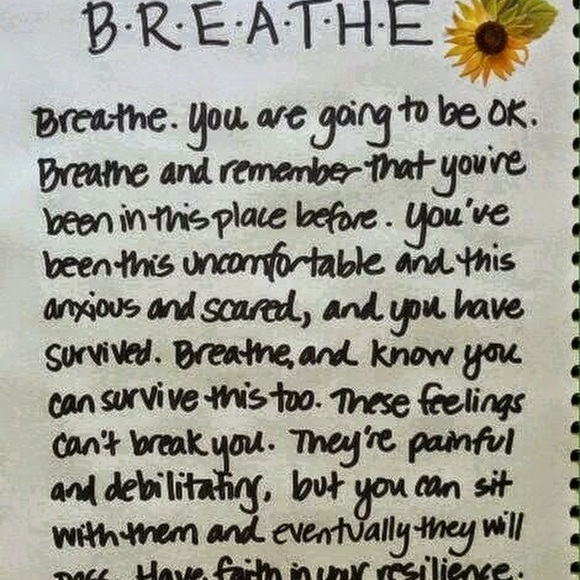 B·R·E·A·T·H·E
Breathe. You are going to be OK.
Breathe and remember that you're
been in this place before. You've
been this uncomfortable and this
anxious and scared, and you have
survived. Breathe, and know you
can survive this too. These feelings
can't break you. They're painful
and debilitating, but you can sit
with them and eventually they will
pass. Have faith in your resilience.